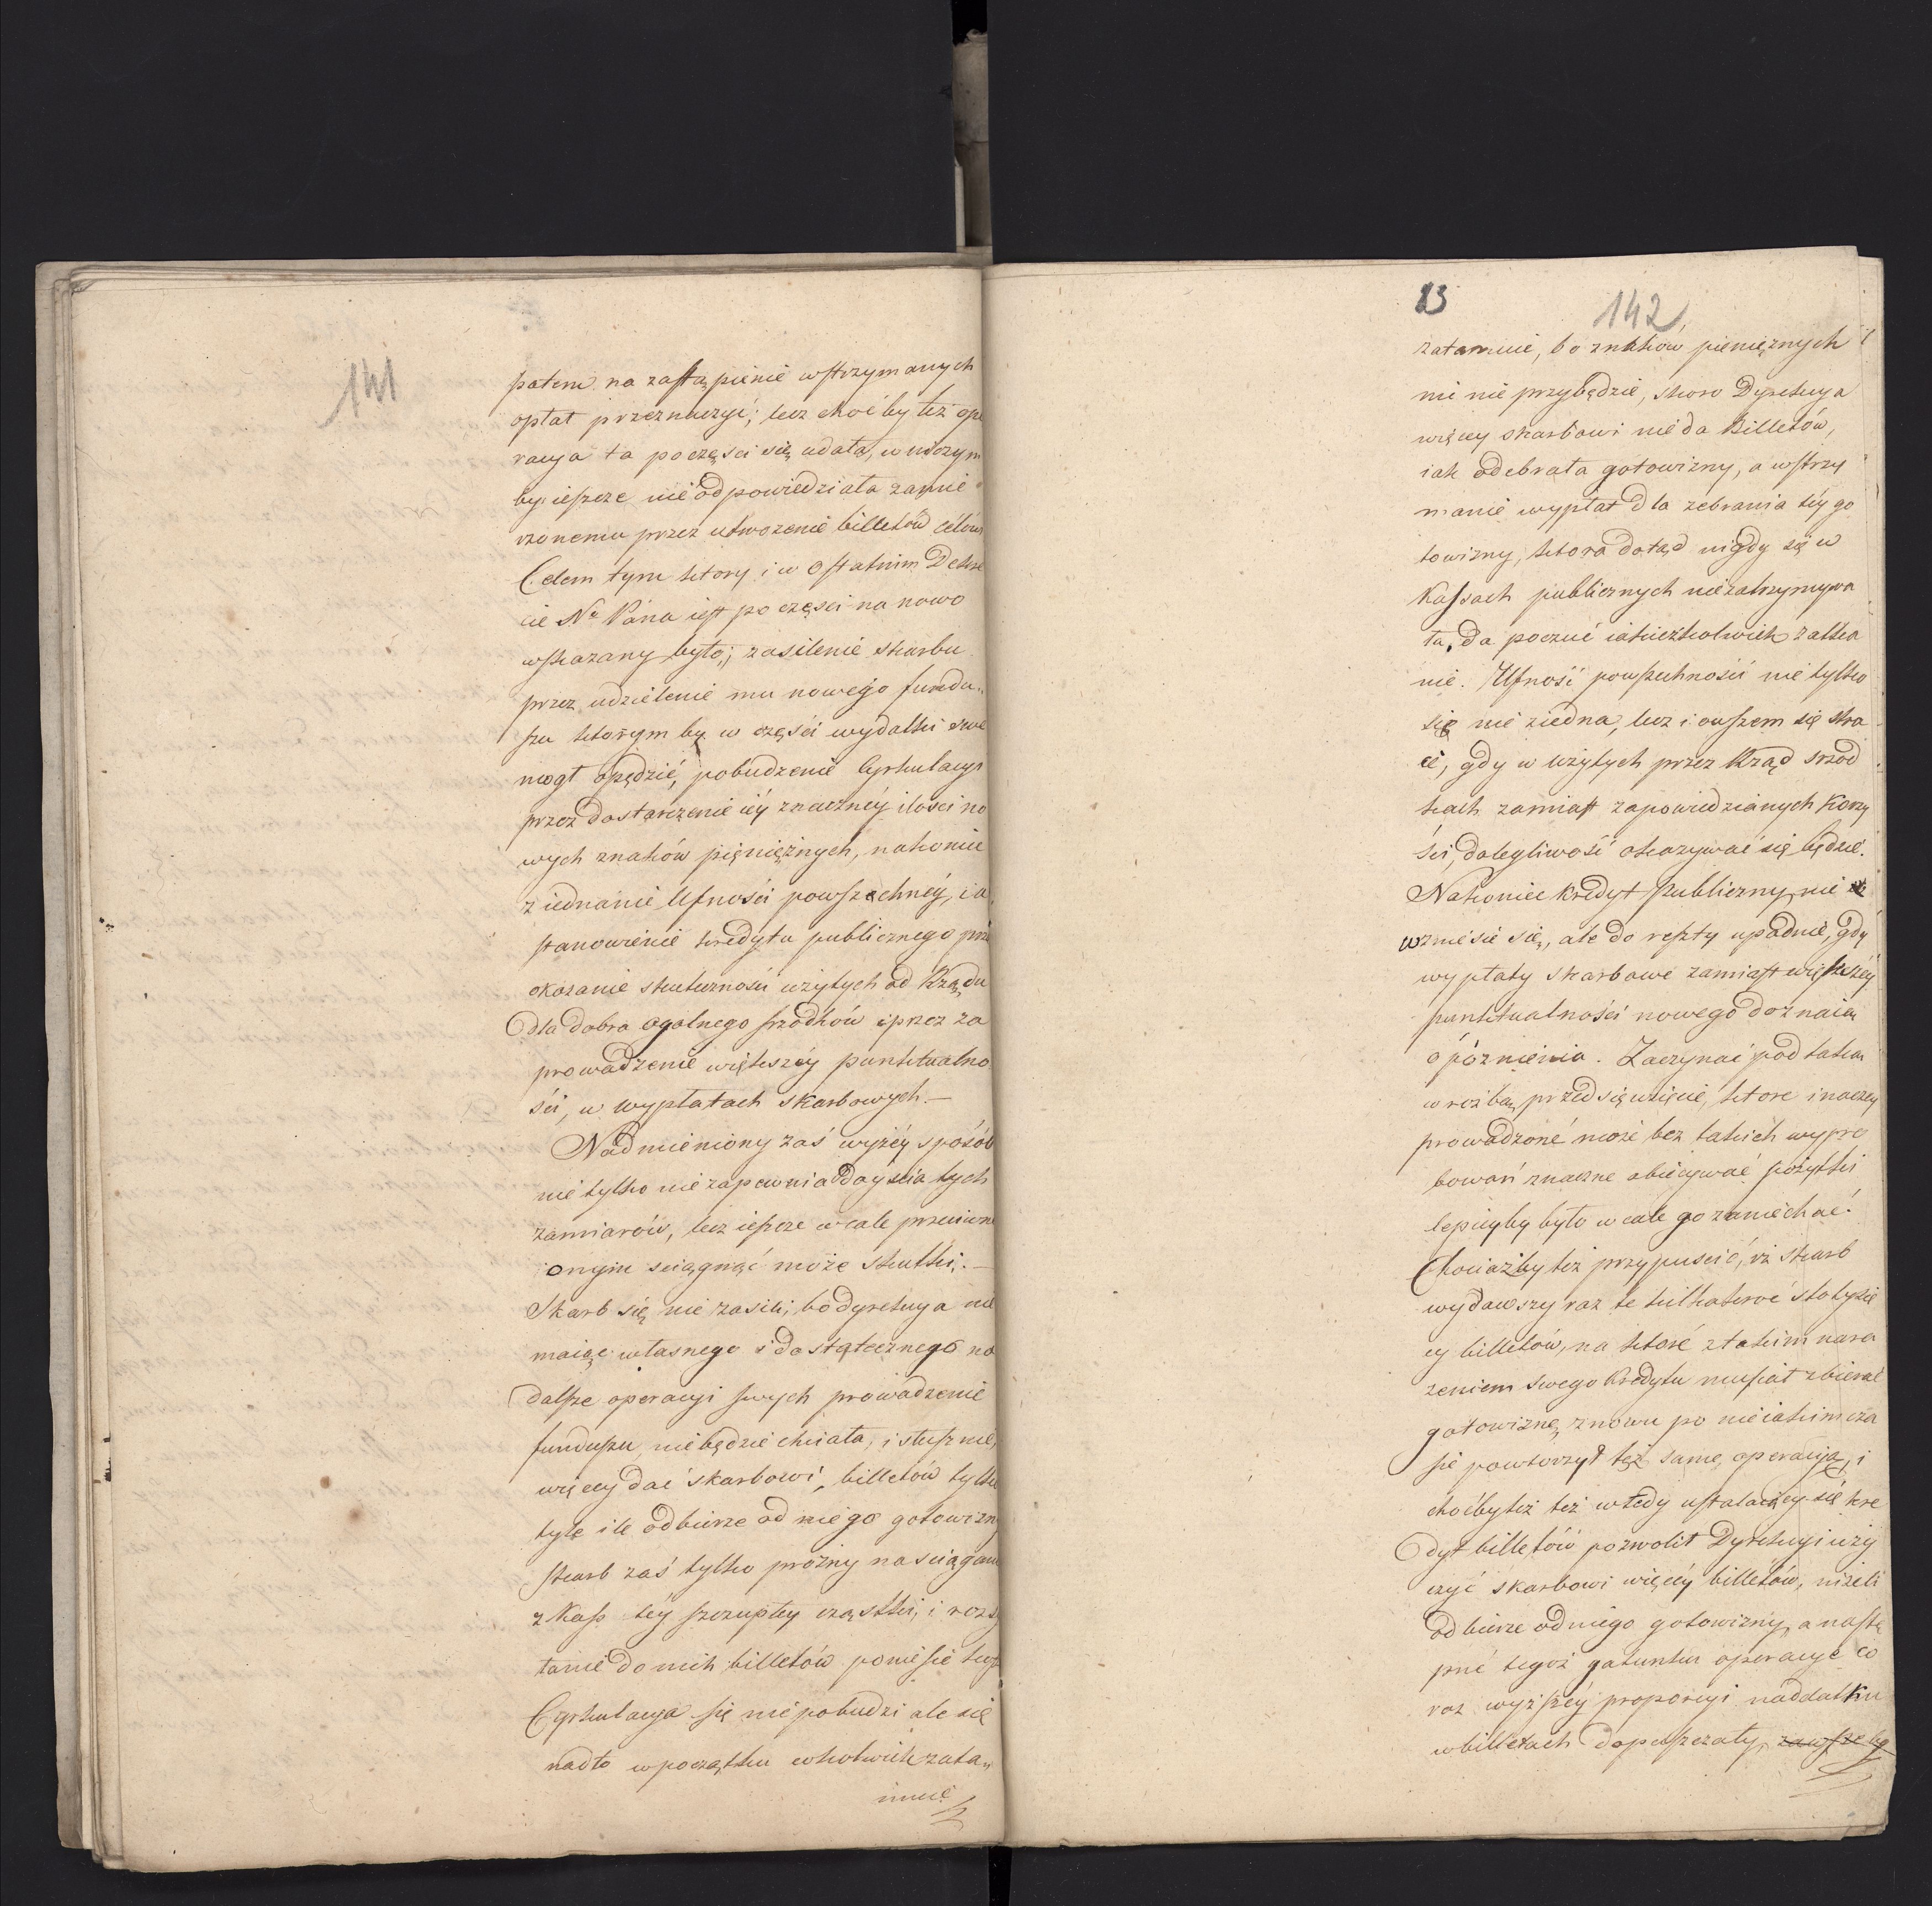 141
patem na zastąpienie wstrzymanych
opłat przeznaczyć; lecz choćby też ope
racya ta poczęsci się udała, w niczym
by ieszcze nie odpowiedziała zamie
rzonemu przez utworzenie billetów celowi
Celem tym ktory i w ostatnim Dekre
cie Nº Pana iest po częsci na nowo
wskazany było; zasilenie skarbu
przez udzielenie mu nowego fundu„
szu ktorym by w częsci wydatki swe
mogł opędzić, pobudzenie Cyrkulacyi
przez dostarczenie iéy znacznéy ilosci no
wych znaków pięniężnych, nakonie
ziednanie Ufności powszechnéy, i a
stanowienie kredytu publicznego prze
okazanie skuteczności użytych od Rządu
dla dobra ogolnego srzodków i przez za
prowadzenie większéy punktualno
ści, w wypłatach skarbowych. —
Nadmieniony zaś wyżéy sposób
nie tylko nie zapewnia doyścia tych
zamiarów, lecz ieszcze wcale przeciwne
onym sciągnąć może skutki. —
Skarb się nie zasili, bo dyrekcya nie
maiąc własnego i dostatecznego na
dalsze operacyi swych prowadzenie
funduszu, nie będzie chciała, i słusznie,
więcey dać skarbowi, billetów tylko
tyle ile odbierze od niego gotowizny
skarb zaś tylko prożny na sciągani
z Kass téy szczupłey cząstki, i rozsy
łanie do nich billetów poniesie kosz
Cyrkulacya się nie pobudzi ale się
nadto wpoczątku cokolwiek zata„
muie
13
142
zatamuie, bo znaków pieniężnych
mi nie przybędzie, skoro Dyrekcya
więcey skarbowi nieda Billetów,
iak odebrała gotowizny, a wstrzy
manie wypłat dla zebrania téy go
towizny, ktora dotąd nigdy się w
Kassach publicznych niezatrzymywa
ła, da poczuć iakieżkolwiek zatka
nie. Ufność powszechności nie tylko
się nie ziedna, lecz i owszem się stra
ci, gdy w użytych przez Rząd srzod
kach zamiast zapowiedzianych korzy
ści, dolegliwość okazywać się będzie.
Nakoniec kredyt publiczny, nie
wzniesie się, ale do reszty upadnie, gdy
wypłaty skarbowe zamiast większéy
punktualności nowego doznaią
opóznienia. Zaczynać pod taką
wrożbą przedsięwzięcie, ktore inaczey
prowadzone może bez takich wypro
bowań znaczne obiecywać pożytki
lepieyby było wcale go zaniechać.
Chociażby też przypuscić, iż skarb
wydawszy raz te kilkakroć stotysię
cy billetów, na ktoré z takim nara
żeniem swego kredytu musiał zbierać
gotowiznę, znowu po nieiakim cza
sie powtorzył też samę operacyą, i
choćby też też wtedy ustalaiący się kre
dyt billetów pozwolił Dyrekcyi uży
czyć skarbowi więcéy billetów, niżeli
odbierze od niego gotowizny, a nastę
pné tegoż gatunku operacyé co
raz wyższéy proporcyi naddatku
w billetach dopuszczały, zawsze by